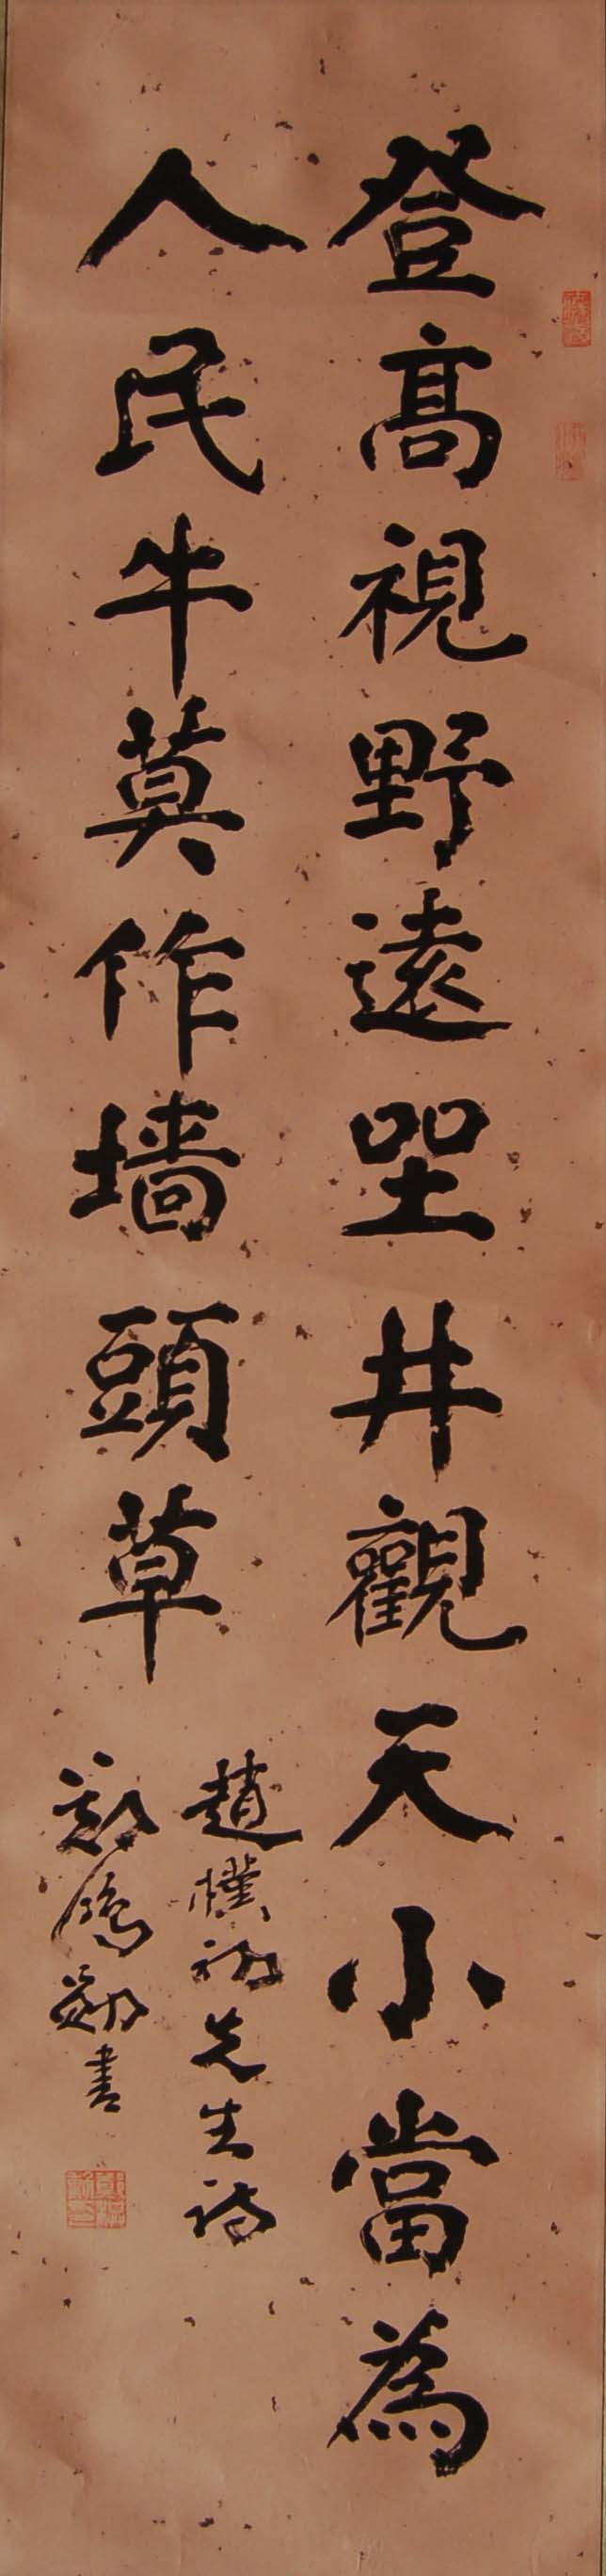 登高視野遠坐井觀天小當為
人民牛莫作墙頭草
趙樸初先生詩
書